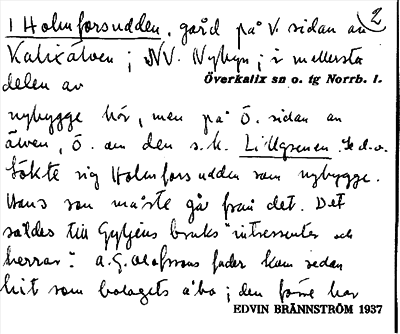 2
1 Holmforsudden, gård på V. sidan av
Kalixälven; NV. Nybyn; i mellersta
delen av Överkalix sn o. tg Norrb. l.
nybygge här, men på Ö. sidan av
älven, Ö. om den s.k. Lillgrenen. Se d.o.
Sökte sig Holmforsudden som nybygge.
Hans son måste gå från det. Det
såldes till Gyljens bruks "intressenter och
herrar". A.G. Olofssons fader kom sedan
hit som bolagets åbo; den förre har
EDVIN BRÄNNSTRÖM 1937